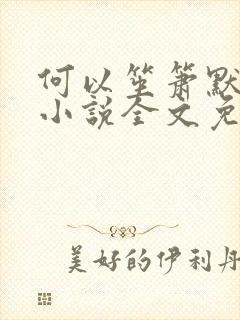 何以笙箫默
小说全文免
美好的伊利丹